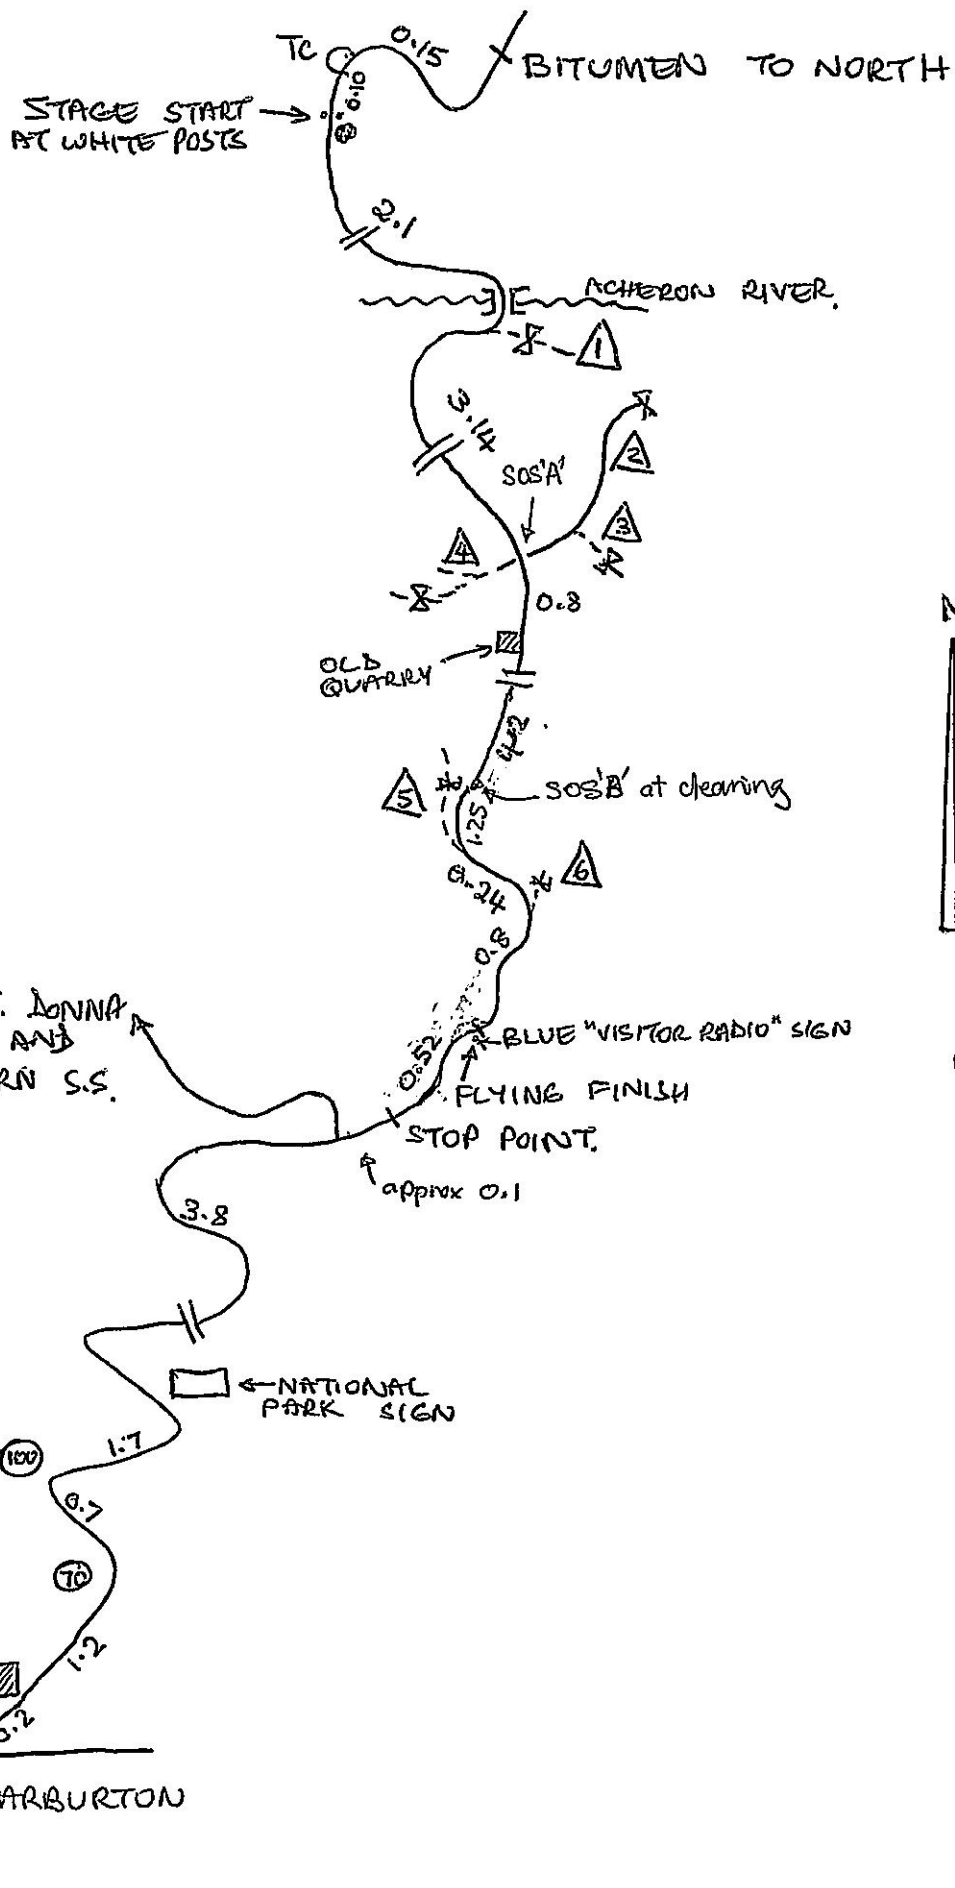 TC
0.15
BITUMEN TO NORTH
0.10
STAGE START
AT WHITE POSTS
2.1
ACHERON RIVER.
1
3.14
2
SOS'A'
3
4
0.8
OLD
QUARRY
4.2
5
SOS'B' at clearing
1.25
6
0.24
0.8
DONNA
AND
S.S.
BLUE "VISITOR RADIO" SIGN
0.52
FLYING FINISH
STOP POINT.
approx 0.1
3.8
NATIONAL
PARK SIGN
1.7
100
0.7
70
1.2
0.2
ARBURTON